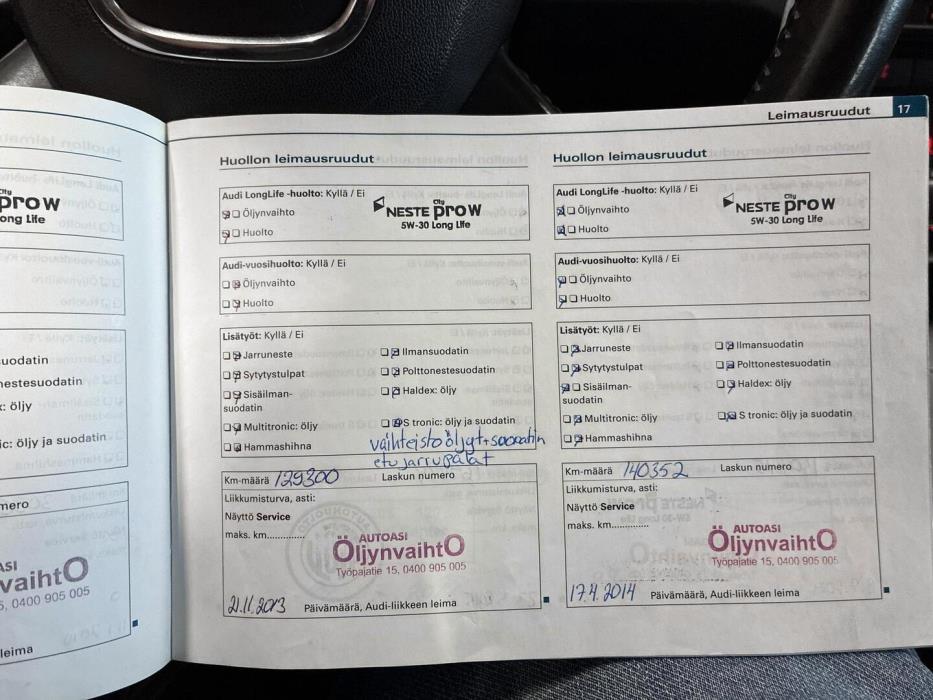 Leimausruudut 17
City
prow
ong Life
uodatin
nestesuodatin
: öljy
ic: öljy ja suodatin
mero
ASI
vaihtO
5, 0400 905 005
leima
Huollon leimausruudut
Audi LongLife -huolto: Kyllä / Ei
Öljynvaihto
Huolto
City
NESTE prow
5W-30 Long Life
Audi-vuosihuolto: Kyllä / Ei
Öljynvaihto
Huolto
Lisätyöt: Kyllä / Ei
Jarruneste
Ilmansuodatin
Sytytystulpat
Polttonestesuodatin
Sisäilman-
suodatin
Haldex: öljy
Multitronic: öljy
S tronic: öljy ja suodatin
Hammashihna
vaihteistoöljyt+suodatin
etujarrupalat
Km-määrä 129300
Laskun numero
Liikkumisturva, asti:
Näyttö Service
maks. km.............
AUTOASI
ÖljynvaihtO
Työpajatie 15, 0400 905 005
21.11.2013 Päivämäärä, Audi-liikkeen leima
Huollon leimausruudut
Audi LongLife -huolto: Kyllä / Ei
Öljynvaihto
Huolto
City
NESTE prow
5W-30 Long Life
Audi-vuosihuolto: Kyllä / Ei
Öljynvaihto
Huolto
Lisätyöt: Kyllä / Ei
Jarruneste
Ilmansuodatin
Sytytystulpat
Polttonestesuodatin
Sisäilman-
suodatin
Haldex: öljy
Multitronic: öljy
S tronic: öljy ja suodatin
Hammashihna
Km-määrä 140352
Laskun numero
Liikkumisturva, asti:
Näyttö Service
maks. km.............
AUTOASI
ÖljynvaihtO
Työpajatie 15, 0400 905 005
17.4.2014 Päivämäärä, Audi-liikkeen leima